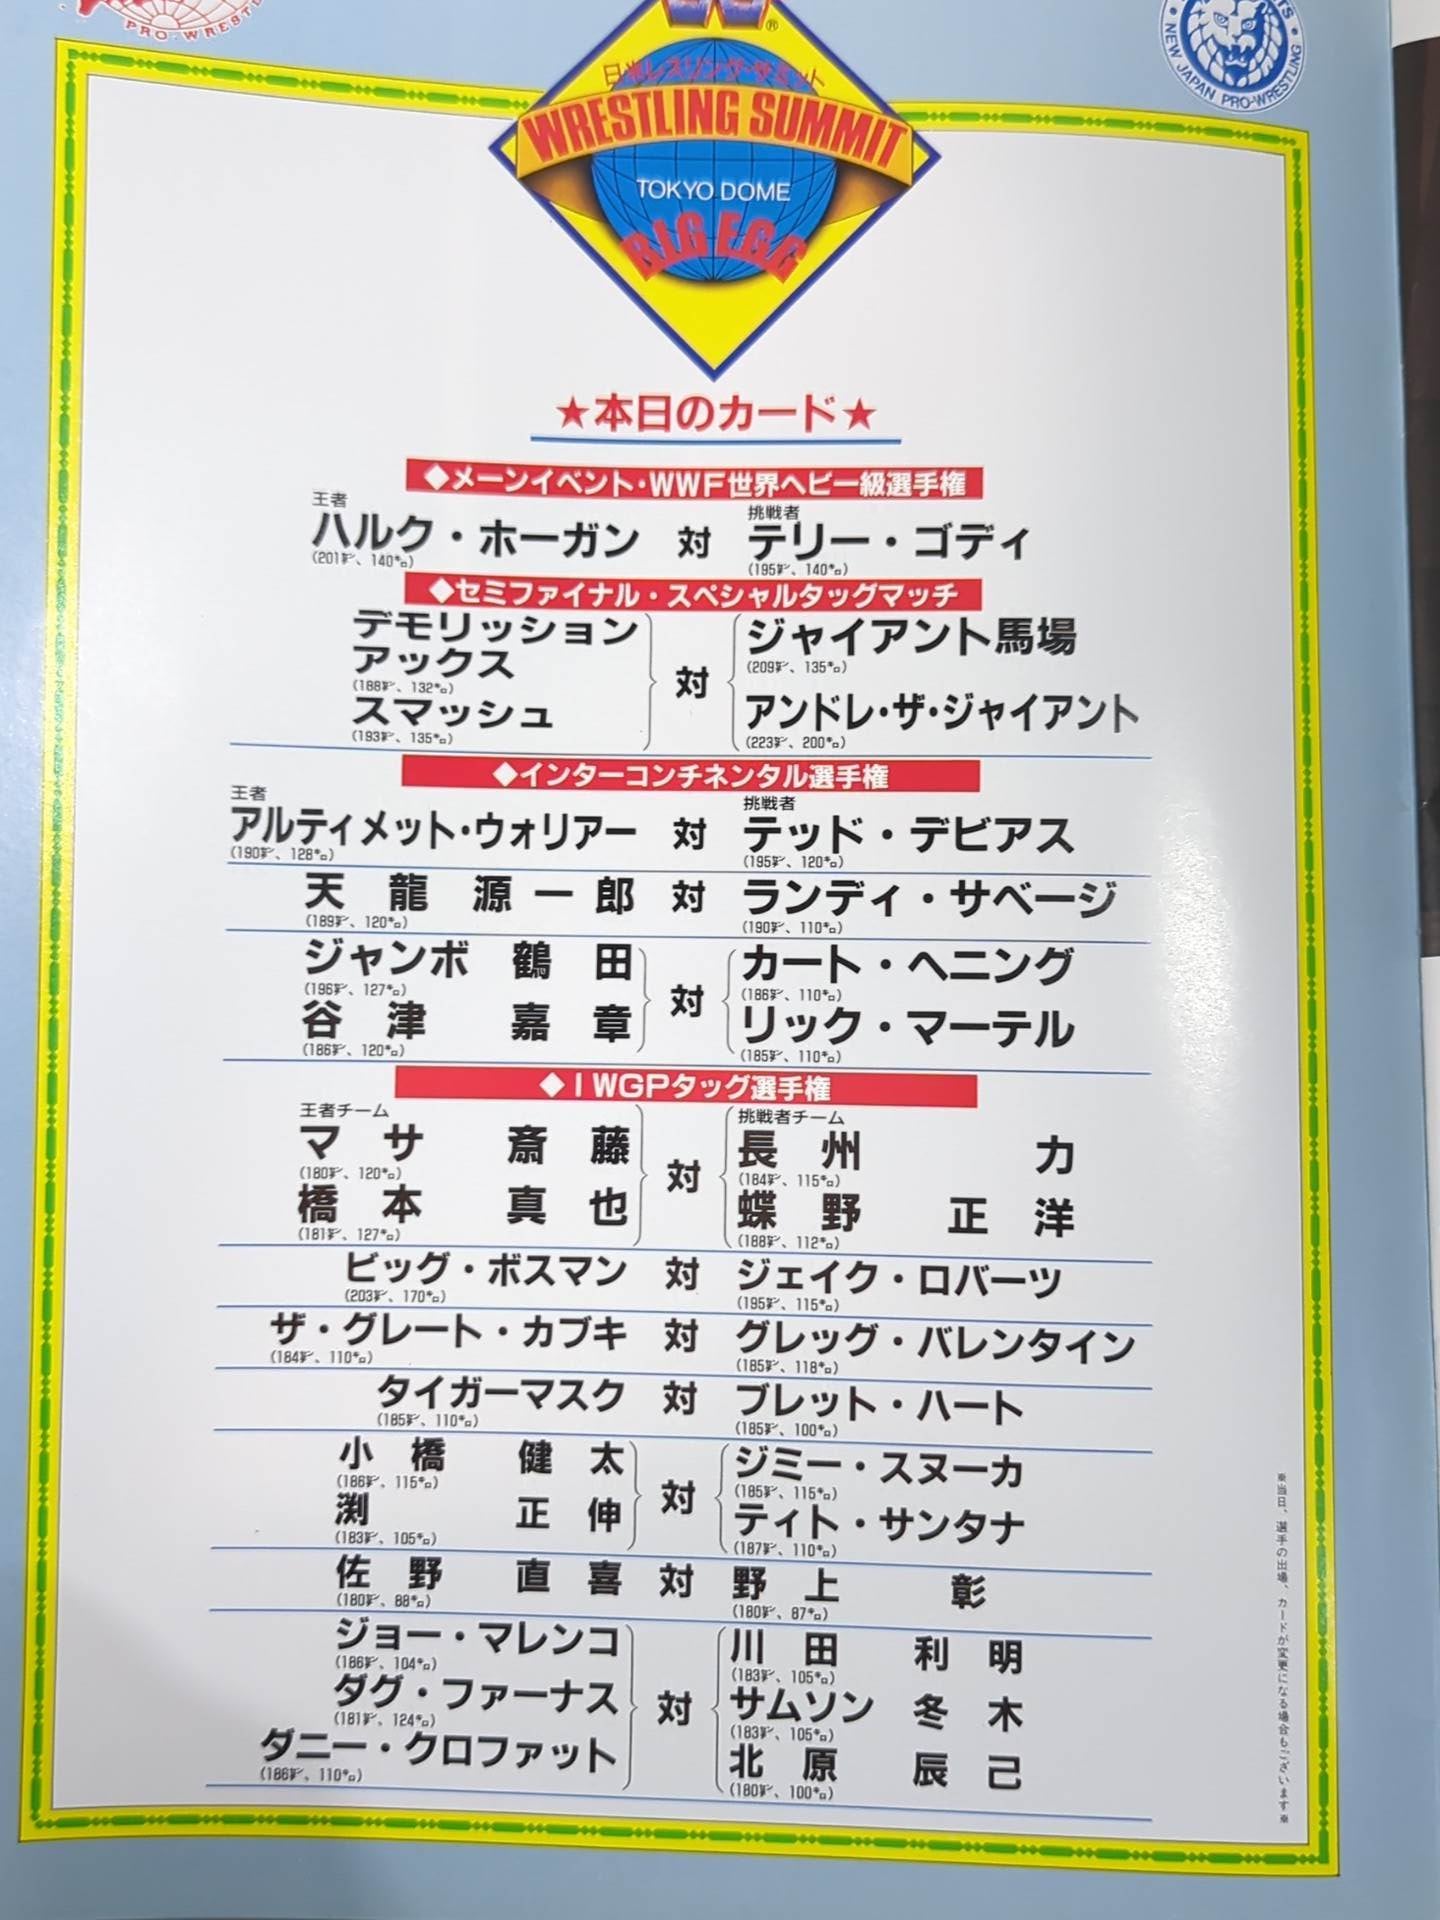 PRO-WREST
NEW JAPAN PRO-WRESTLING
日米レスリング・サミット
WRESTLING SUMMIT
TOKYO DOME
BIG EGG
★本日のカード★
◆メーンイベント・WWF世界ヘビー級選手権
王者 挑戦者
ハルク・ホーガン 対 テリー・ゴディ
(201㌢、140㌔) (195㌢、140㌔)
◆セミファイナル・スペシャルタッグマッチ
デモリッション
アックス
(188㌢、132㌔)
スマッシュ
(193㌢、135㌔)
対
ジャイアント馬場
(209㌢、135㌔)
アンドレ・ザ・ジャイアント
(223㌢、200㌔)
◆インターコンチネンタル選手権
王者 挑戦者
アルティメット・ウォリアー 対 テッド・デビアス
(190㌢、128㌔) (195㌢、120㌔)
天龍源一郎 対 ランディ・サベージ
(189㌢、120㌔) (190㌢、110㌔)
ジャンボ鶴田
(196㌢、127㌔)
谷津嘉章
(186㌢、120㌔)
対
カート・ヘニング
(186㌢、110㌔)
リック・マーテル
(185㌢、110㌔)
◆IWGPタッグ選手権
王者チーム
マサ斎藤
(180㌢、120㌔)
橋本真也
(181㌢、127㌔)
対
挑戦者チーム
長州力
(184㌢、115㌔)
蝶野正洋
(188㌢、112㌔)
ビッグ・ボスマン 対 ジェイク・ロバーツ
(203㌢、170㌔) (195㌢、115㌔)
ザ・グレート・カブキ 対 グレッグ・バレンタイン
(184㌢、110㌔) (185㌢、118㌔)
タイガーマスク 対 ブレット・ハート
(185㌢、110㌔) (185㌢、100㌔)
小橋健太
(186㌢、115㌔)
渕正伸
(183㌢、105㌔)
対
ジミー・スヌーカ
(185㌢、115㌔)
ティト・サンタナ
(187㌢、110㌔)
佐野直喜 対 野上彰
(180㌢、88㌔) (180㌢、87㌔)
ジョー・マレンコ
(186㌢、104㌔)
ダグ・ファーナス
(181㌢、124㌔)
ダニー・クロファット
(186㌢、110㌔)
対
川田利明
(183㌢、105㌔)
サムソン冬木
(183㌢、105㌔)
北原辰己
(180㌢、100㌔)
※当日、選手の出場、カードが変更になる場合もございます※